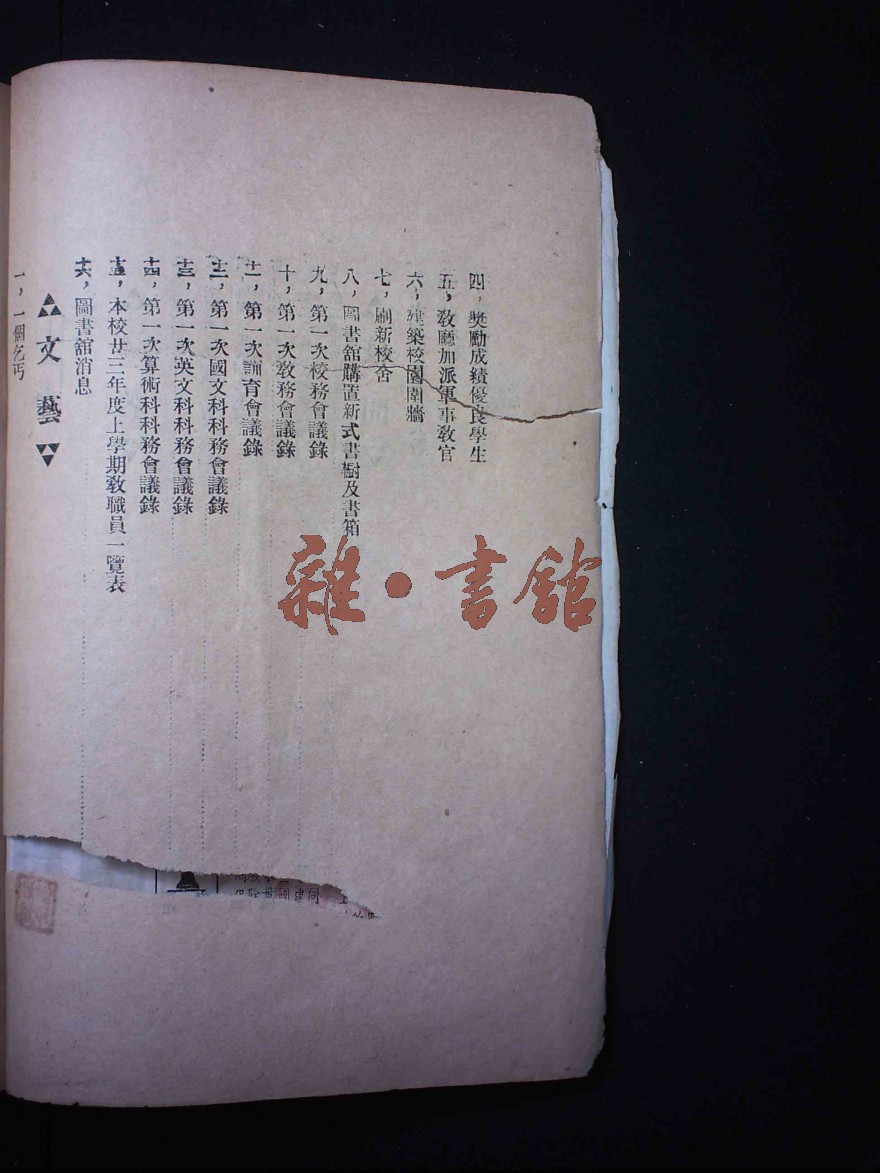 四，獎勵成績優良學生
五，敎廳加派軍事敎官
六，建築校園圍牆
七，刷新校舍
八，圖書舘購置新式書櫥及書箱
九，第一次校務會議錄
十，第一次敎務會議錄
十一，第一次訓育會議錄
十二，第一次國文科科務會議錄
十三，第一次英文科科務會議錄
十四，第一次算術科科務會議錄
十五，本校廿三年度上學期敎職員一覽表
十六，圖書舘消息
文藝
一，一個乞丐
雜·書館